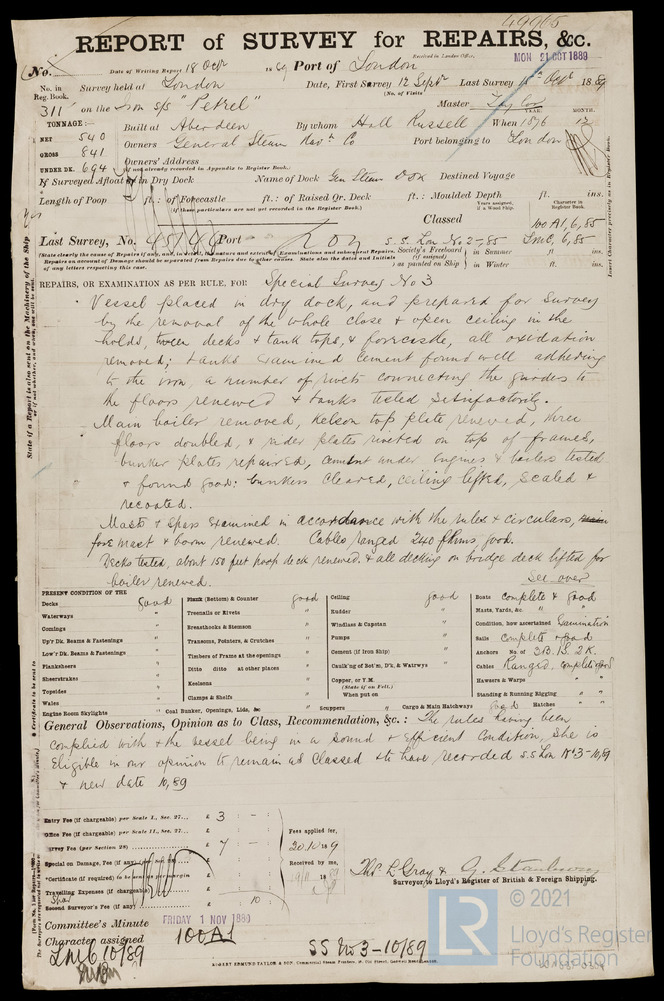 49905
REPORT of SURVEY for REPAIRS, &c.
Received in London Office,
MON 21 OCT 1889
No. Date of Writing Report 18 Octr 1889 Port of London
No. in Reg. Book. Survey held at London Date, First Survey 12 Septr Last Survey Octr 1889
(No. of Visits)
311 on the Iron S/S "Petrel" Master Taylor
TONNAGE:— MONTH.
NET 540 Built at Aberdeen By whom Hall Russell When 1876 12
GROSS 841 Owners General Steam Navn Co Port belonging to London
UNDER DK. 694 Owners' Address
(if not already recorded in Appendix to Register Book.)
If Surveyed Afloat or in Dry Dock Name of Dock Gen Steam Dock Destined Voyage
Length of Poop ft.: of Forecastle ft.: of Raised Qr. Deck ft.: Moulded Depth ft. ins.
(if these particulars are not yet recorded in the Register Book.)
Years assigned, if a Wood Ship.
Character in Register Book.
Classed 100A1,6,85
Last Survey, No. 45146 Port Lon S.S. Lon No 2-85 LMC,6,85
Society's Freeboard (if assigned) as painted on Ship in Summer ft ins.
in Winter ft. ins.
REPAIRS, OR EXAMINATION AS PER RULE, FOR Special Survey No 3
Vessel placed in dry dock, and prepared for survey
by the removal of the whole close & open ceiling in the
holds, tween decks & tank tops, & forecastle, all oxidation
removed; tanks examined cement found well adhering
to the iron, a number of rivets connecting the girders to
the floors renewed & tanks tested satisfactorily.
Main boiler removed, kelson top plate renewed, three
floors doubled, & rider plates riveted on top of frames,
bunker plates repaired, cement under engines & boilers tested
& found good: bunkers cleared, ceiling lifted, scaled &
recoated.
Masts & spars examined in accordance with the rules & circulars,
foremast & boom renewed. Cables ranged 240 fthms good.
Decks tested, about 150 feet poop deck renewed. & all decking on bridge deck lifted for
boiler renewed. See over
PRESENT CONDITION OF THE
Decks Good
Waterways "
Comings "
Up'r Dk. Beams & Fastenings "
Low'r Dk. Beams & Fastenings "
Planksheers "
Sheerstrakes "
Topsides "
Wales "
Engine Room Skylights "
Plank (Bottom) & Counter good
Treenails or Rivets "
Breasthooks & Stemson "
Transoms, Pointers, & Crutches "
Timbers of Frame at the openings "
Ditto ditto at other places "
Keelsons "
Clamps & Shelfs "
Coal Bunker, Openings, Lids, &c "
Ceiling good
Rudder "
Windlass & Capstan "
Pumps "
Cement (if Iron Ship) "
Caulk'ng of Bot'm, D'k, & Watrwys "
Copper, or Y.M.
(State if on Felt.)
When put on
Scuppers "
Cargo & Main Hatchways good Hatches "
Boats complete & good
Masts, Yards, &c. " "
Condition, how ascertained Examination
Sails complete & good
Anchors No. of 3B.1S. 2K.
Cables Ranged, complete & good
Hawsers & Warps " "
Standing & Running Rigging " "
General Observations, Opinion as to Class, Recommendation, &c.: The rules having been
complied with & the vessel being in a sound & efficient condition, she is
eligible in our opinion to remain as classed & to have recorded S.S. Lon No 3-10/89
& new date 10,89
Entry Fee (if chargeable) per Scale I., Sec. 27... £ 3 : - :
Office Fee (if chargeable) per Scale II., Sec. 27... £
Survey Fee (per Section 28) £ 7 - :
Special on Damage, Fee (if any)
Travelling Expenses (if chargeable) £
Second Surveyor's Fee (if any) £ 10 :
Fees applied for,
20.10.1889
Received by me,
Thos L Gray & G. Stanbury
Surveyor to Lloyd's Register of British & Foreign Shipping.
Committee's Minute FRIDAY 1 NOV 1889
Character assigned 100A1
LMC 10/89 SS No 3-10/89
© 2021
LR
Lloyd's Register
Foundation